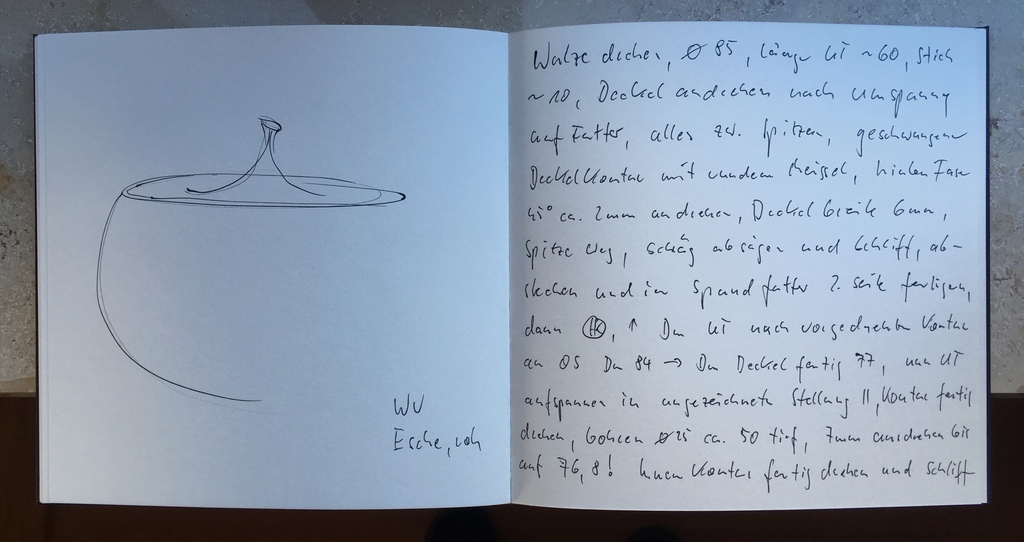 WV
Esche, roh
Walze drehen, Ø 85, Länge UT ~60, Stich
~10, Deckel andrehen nach Umspannung
auf Futter, alles zw. Spitzen, geschwungene
Deckelkontur mit rundem Meissel, hinten Fase
45° ca. 2mm andrehen, Deckelbreite 6mm,
Spitze weg, schräg absägen und Schliff, ab-
stechen und im Spundfutter 2. Seite fertigen,
dann HK, ↑ Du UT nach vorgedrehter Kontur
an OS Du 84 → Du Deckel fertig 77, nun UT
aufspannen in angezeichnete Stellung II, Kontur fertig
drehen, bohren Ø 25 ca. 50 tief, 7mm ausdrehen bis
auf 76,8! Innen Kontur fertig drehen und Schliff